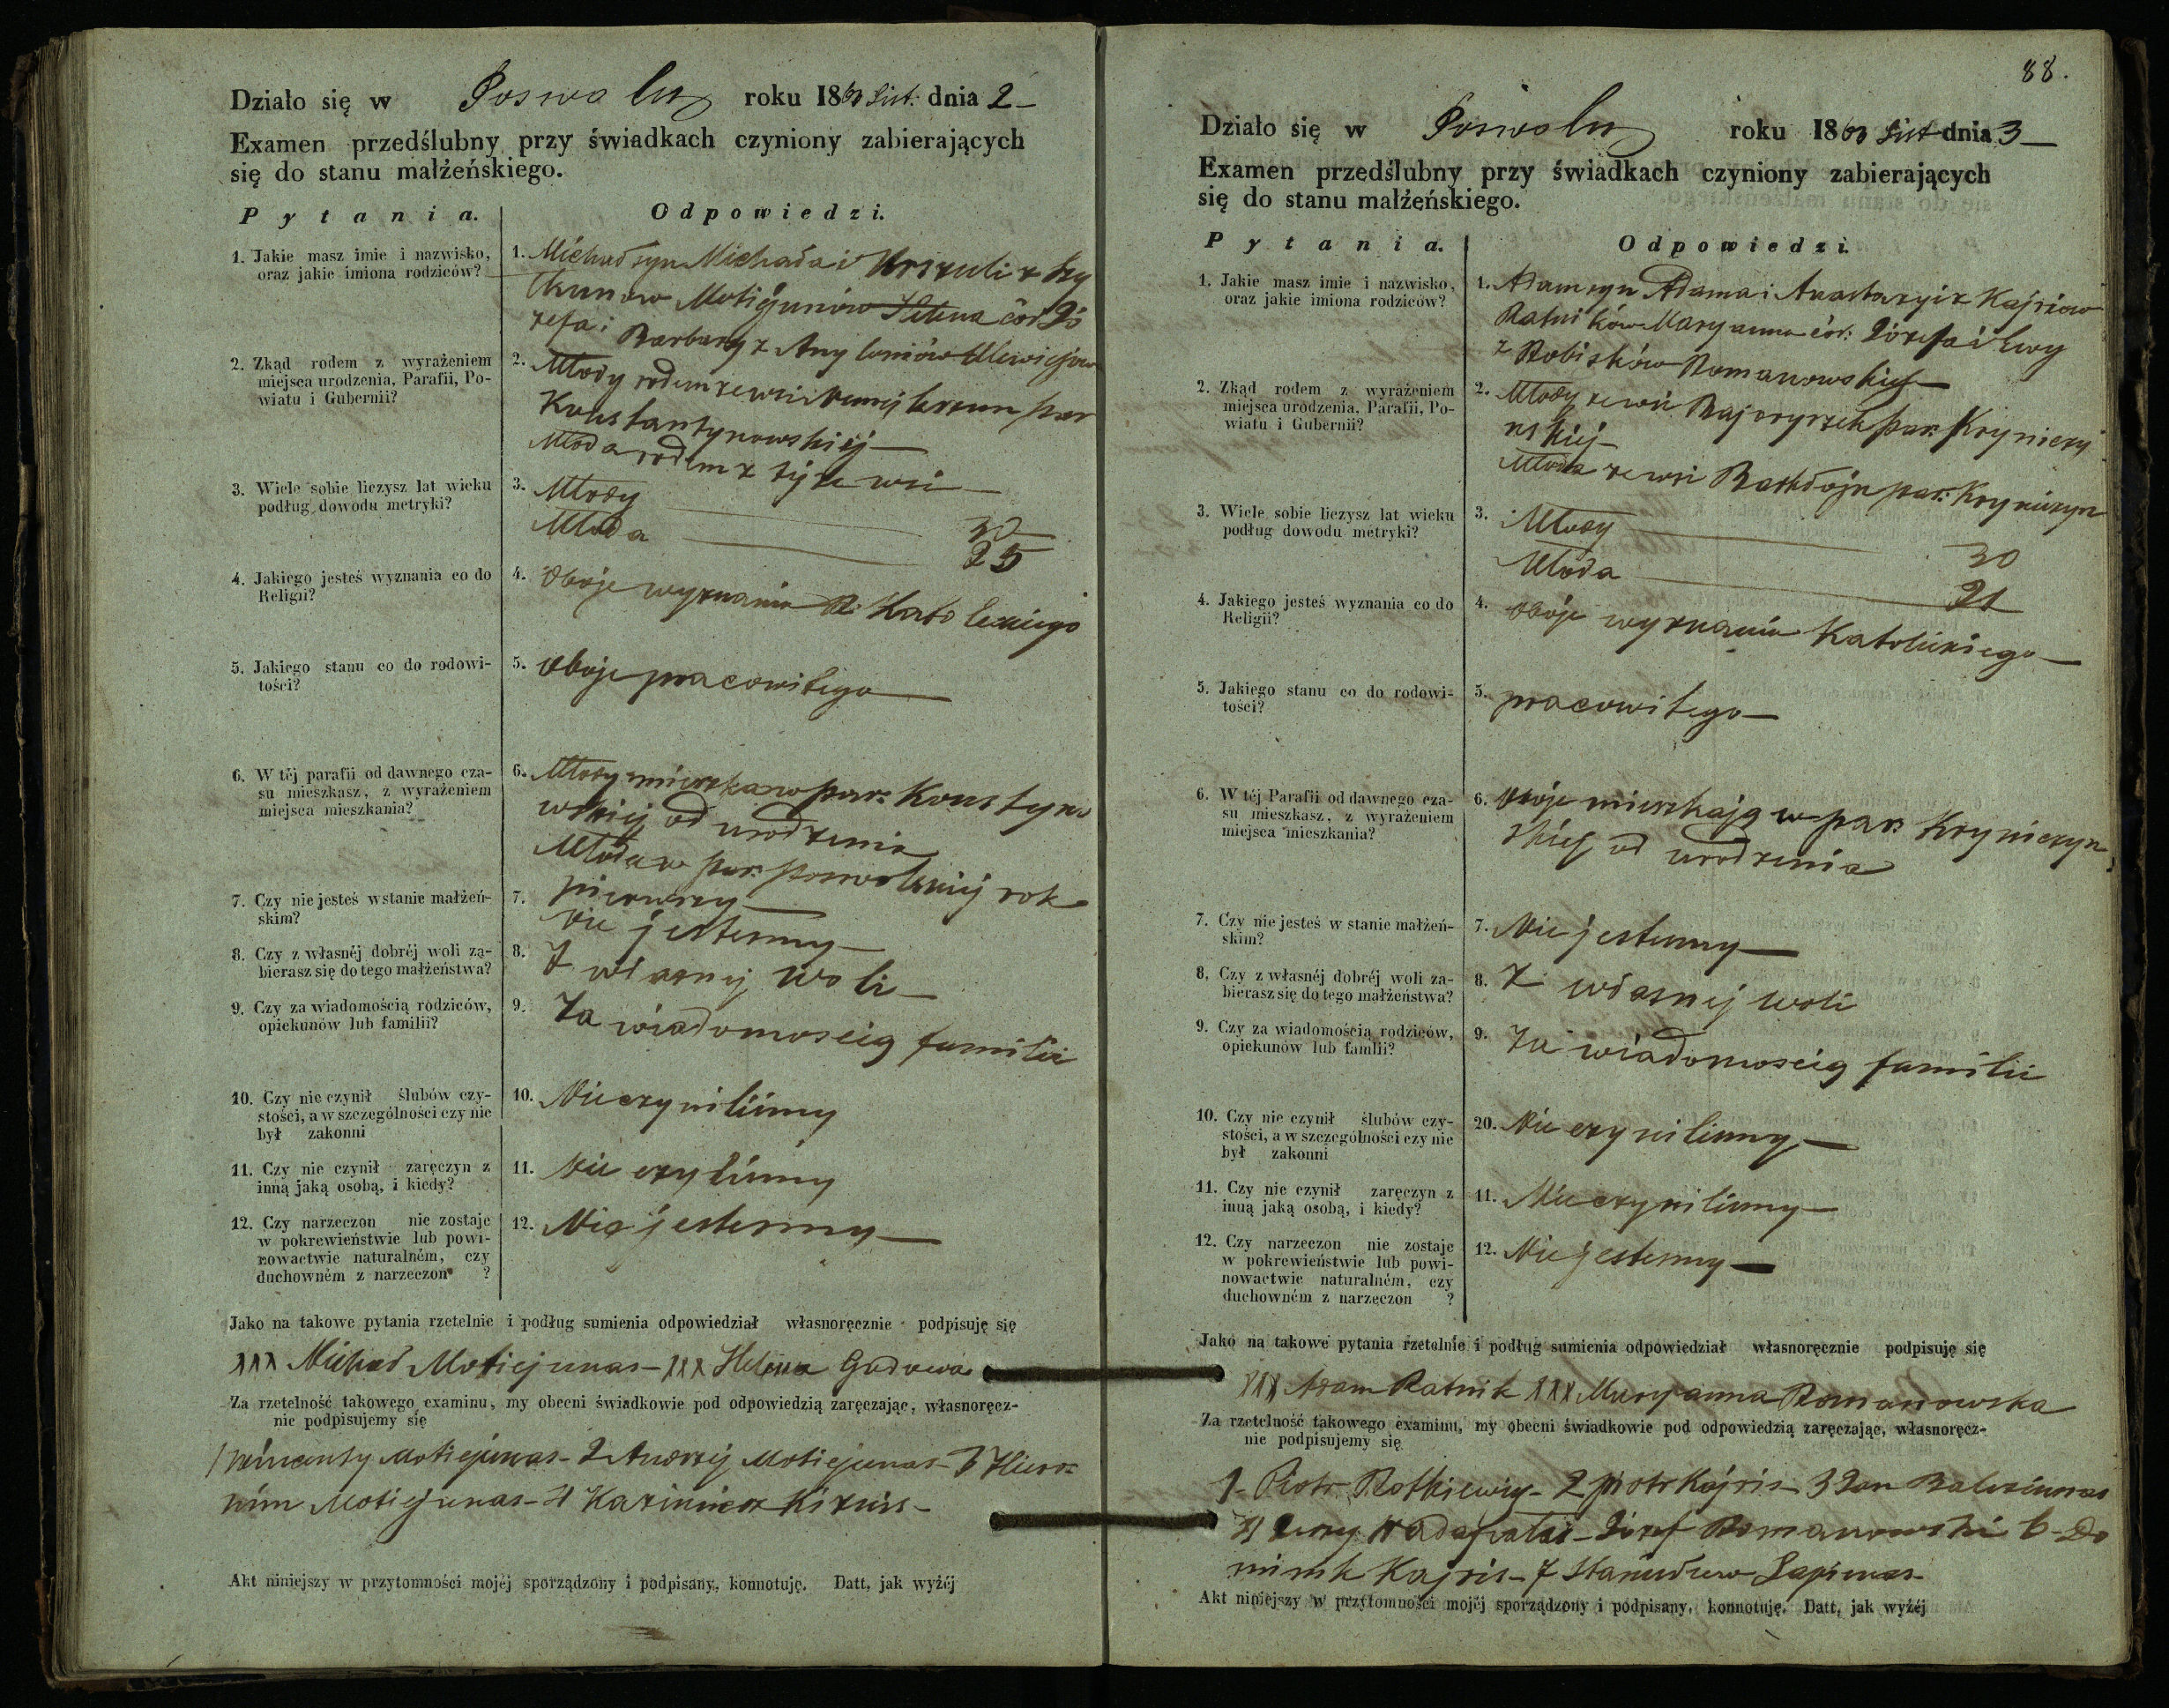 Działo się w Poswolu roku 1863 List: dnia 2
Examen przedślubny przy świadkach czyniony zabierających
się do stanu małżeńskiego.
Pytania.
Odpowiedzi.
1. Jakie masz imie i nazwisko,
oraz jakie imiona rodziców?
1. Michał syn Michała i Urszuli z
Motiejunów Helena cór: Jó
zefa i Barbary z
2. Zkąd rodem z wyrażeniem
miejsca urodzenia, Parafii, Po-
wiatu i Gubernii?
2. Młody rodem ze wsi par
Konstantynowskiej
Młoda rodem z tejże wsi
3. Wiele sobie liczysz lat wieku
podług dowodu metryki?
3. Młody 30
Młoda 25
4. Jakiego jesteś wyznania co do
Religii?
4. Oboje wyznania R: Katolickiego
5. Jakiego stanu co do rodowi-
tości?
5. Oboje pracowitego
6. W téj parafii od dawnego cza-
su mieszkasz, z wyrażeniem
miejsca mieszkania?
6. Młody mieszka w par: Konstyno
wskiej od urodzenia
Młoda w par: poswolskiej rok
pierwszy
7. Czy nie jesteś w stanie małżeń-
skim?
7. Nie jestesmy
8. Czy z własnéj dobréj woli za-
bierasz się do tego małżeństwa?
8. Z własnej woli
9. Czy za wiadomością rodziców,
opiekunów lub familii?
9. Za wiadomoscią familii
10. Czy nie czynił ślubów czy-
stości, a w szczególności czy nie
był zakonni
10. Nie czynilismy
11. Czy nie czynił zaręczyn z
inną jaką osobą, i kiedy?
11. Nie czylismy
12. Czy narzeczon nie zostaje
w pokrewieństwie lub powi-
nowactwie naturalném, czy
duchowném z narzeczon ?
12. Nie jestesmy
Jako na takowe pytania rzetelnie i podług sumienia odpowiedział własnoręcznie podpisuję się
XXX Michał Motiejunas - XXX Helena
Za rzetelność takowego examinu, my obecni świadkowie pod odpowiedzią zaręczając, własnoręcz-
nie podpisujemy się
1 Wincenty Motiejunas - 2 Andrzej Motiejunas - 3 Hiero
nim Motiejunas - 4 Kazimierz
Akt niniejszy w przytomności mojéj sporządzony i podpisany, konnotuję. Datt, jak wyżéj
88.
Działo się w Poswolu roku 1863 List dnia 3
Examen przedślubny przy świadkach czyniony zabierających
się do stanu małżeńskiego.
Pytania.
Odpowiedzi.
1. Jakie masz imie i nazwisko,
oraz jakie imiona rodziców?
1. Adam syn Adama i Anastazyi z Kajrisow
Ratników Maryanna cór: Józefa i Ewy
z Romanowskich
2. Zkąd rodem z wyrażeniem
miejsca urodzenia, Parafii, Po-
wiatu i Gubernii?
2. Młody ze wsi par: Kryniczy
nskiej
Młoda ze wsi par: Kryniczyn
3. Wiele sobie liczysz lat wieku
podług dowodu metryki?
3. Młody 30
Młoda 21
4. Jakiego jesteś wyznania co do
Religii?
4. Oboje wyznania Katolickiego
5. Jakiego stanu co do rodowi-
tości?
5. pracowitego
6. W téj Parafii od dawnego cza-
su mieszkasz, z wyrażeniem
miejsca mieszkania?
6. Oboje mieszkają w par: Kryniczyn
skiej od urodzenia
7. Czy nie jesteś w stanie małżeń-
skim?
7. Nie jestesmy
8. Czy z własnéj dobréj woli za-
bierasz się do tego małżeństwa?
8. Z własnej woli
9. Czy za wiadomością rodziców,
opiekunów lub famlii?
9. Za wiadomoscią familii
10. Czy nie czynił ślubów czy-
stości, a w szczególności czy nie
był zakonni
20. Nie czynilismy
11. Czy nie czynił zaręczyn z
inuą jaką osobą, i kiedy?
11. Nie czynilismy
12. Czy narzeczon nie zostaje
w pokrewieństwie lub powi-
nowactwie naturalném, czy
duchowném z narzeczon ?
12. Nie jestesmy
Jako na takowe pytania rzetelnie i podług sumienia odpowiedział własnoręcznie podpisuję się
XXX Adam Ratnik XXX Maryanna Romanowska
Za rzetelność takowego examinu, my obecni świadkowie pod odpowiedzią zaręczając, własnoręcz-
nie podpisujemy się
1- Piotr - 2 Piotr Kajris - 3 Jan
4 Jerzy - Józef Romanowski 6 - Do
minik Kajris - 7 Stanisław
Akt niniejszy w przytomności mojéj sporządzony i podpisany, konnotuję. Datt, jak wyżéj